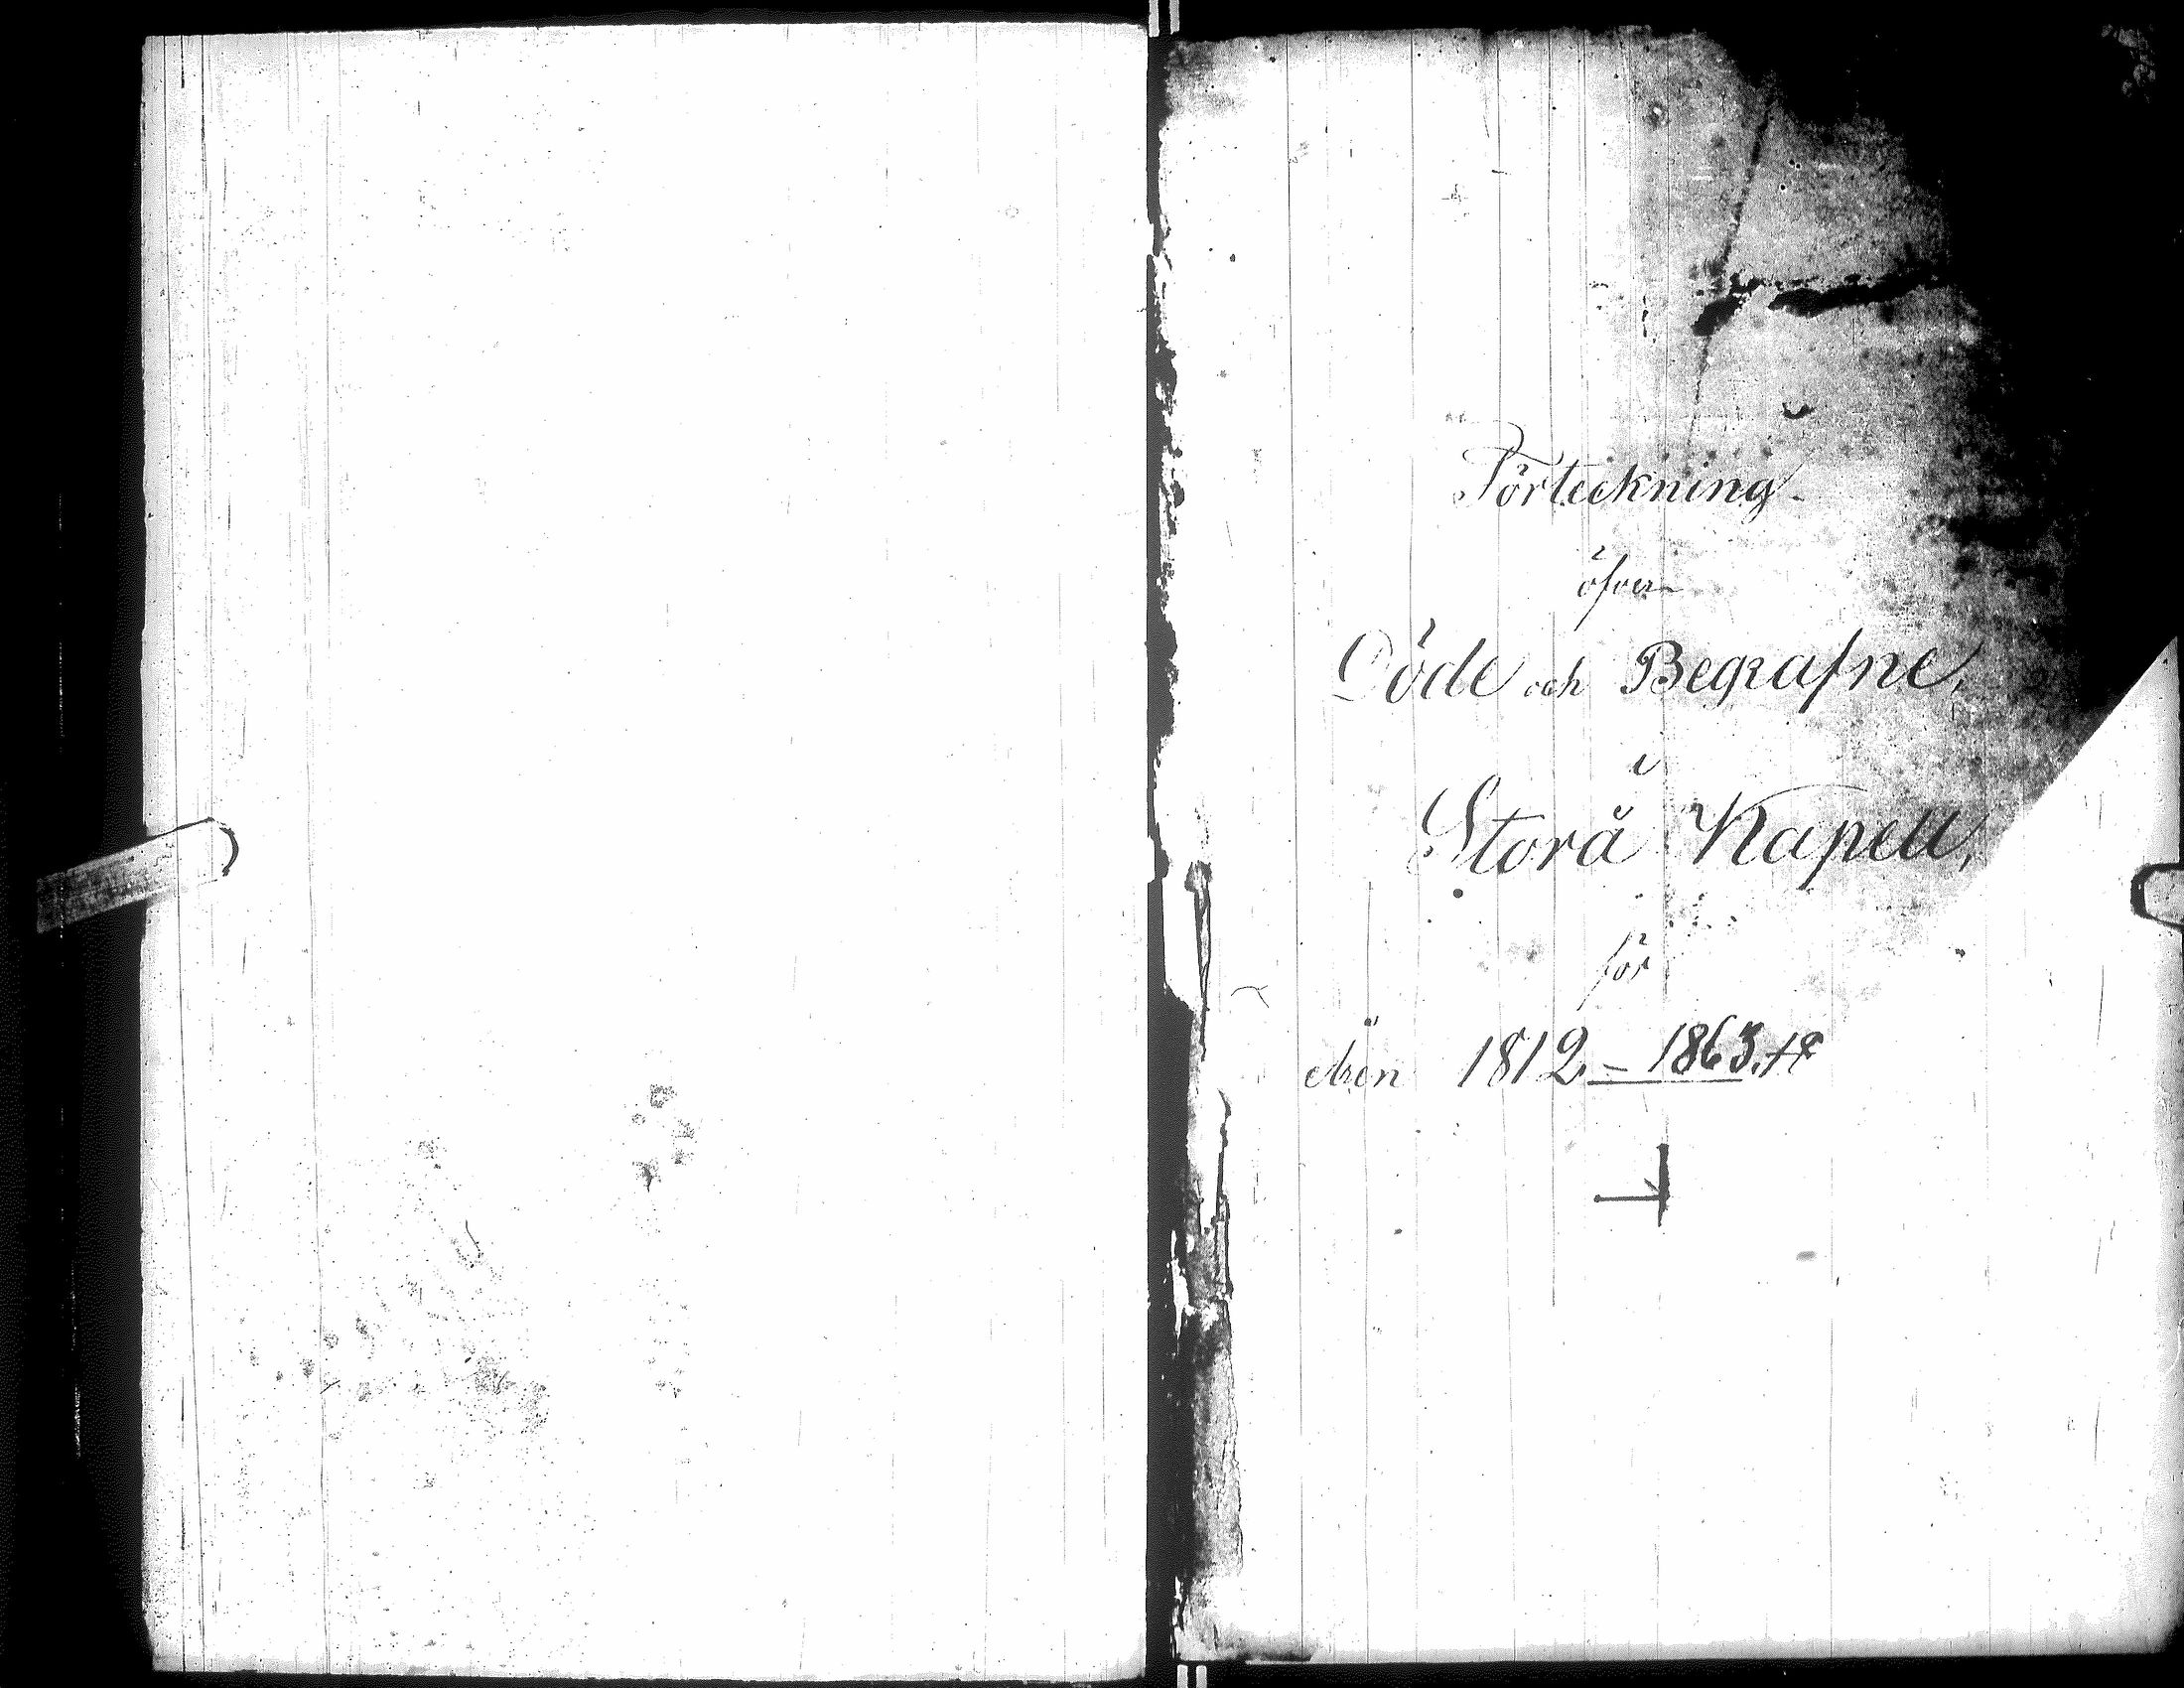 Förteckning
öfver
Döde och Begrafne,
i
Storå Kapell,
för
åren 1812 – 1863.